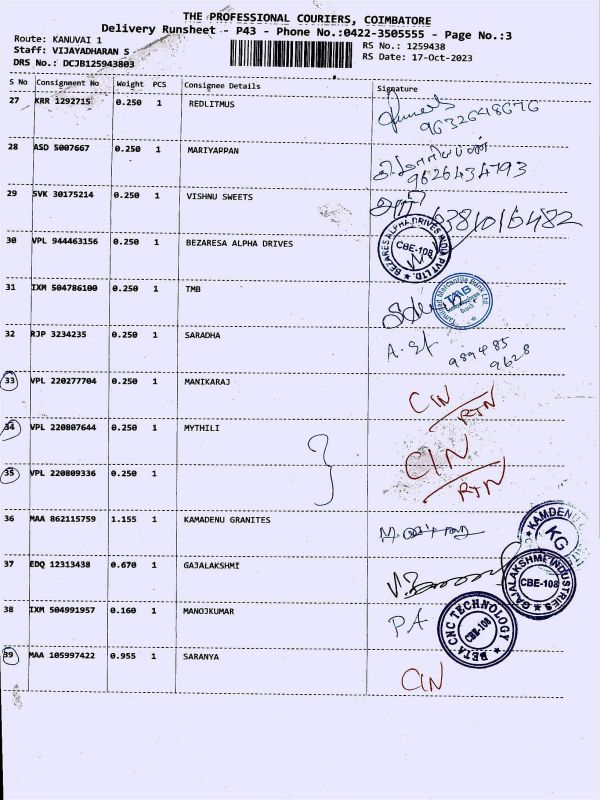 THE PROFESSIONAL COURIERS, COIMBATORE
Delivery Runsheet - P43 - Phone No.:0422-3505555 - Page No.:3
Route: KANUVAI 1
RS No.: 1259438
Staff: VIJAYADHARAN S
RS Date: 17-Oct-2023
DRS No.: DCJB125943803
S No Consignment No Weight PCS Consignee Details Signature
27 KRR 1292715 0.250 1 REDLITMUS
9632648676
28 ASD 5007667 0.250 1 MARIYAPPAN
9626434793
29 SVK 30175214 0.250 1 VISHNU SWEETS
6381016482
30 VPL 944463156 0.250 1 BEZARESA ALPHA DRIVES
BEZARES ALPHA DRIVES INDIA PVT LTD.
CBE-108
31 IXM 504786100 0.250 1 TMB
Tamilnad Mercantile Bank Ltd.
TMB
32 RJP 3234235 0.250 1 SARADHA
989485
9628
33 VPL 220277704 0.250 1 MANIKARAJ
CIN
RTN
34 VPL 220807644 0.250 1 MYTHILI
CIN
35 VPL 220809336 0.250 1
RTN
36 MAA 862115759 1.155 1 KAMADENU GRANITES
KAMDENU
KG
37 EDQ 12313438 0.670 1 GAJALAKSHMI
GAJALAKSHME INDUSTRIES
CBE-108
38 IXM 504991957 0.160 1 MANOJKUMAR
PA
BETA CNC TECHNOLOGY
CBE-108
39 MAA 105997422 0.955 1 SARANYA
CIN